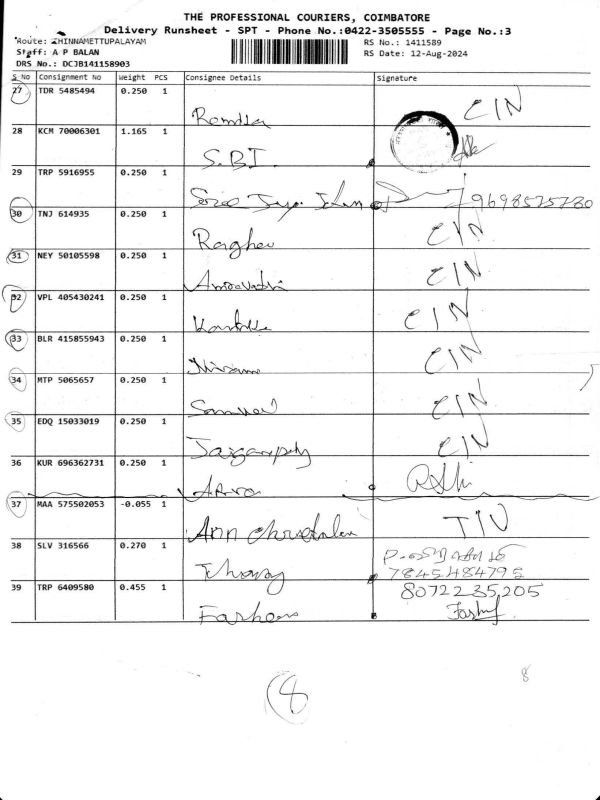 THE PROFESSIONAL COURIERS, COIMBATORE
Delivery Runsheet - SPT - Phone No.:0422-3505555 - Page No.:3
Route: CHINNAMETTUPALAYAM
RS No.: 1411589
Staff: A P BALAN
RS Date: 12-Aug-2024
DRS No.: DCJB141158903
S No Consignment No Weight PCS Consignee Details Signature
27 TDR 5485494 0.250 1 CIN
28 KCM 70006301 1.165 1 S.B.I
29 TRP 5916955 0.250 1 9698575780
30 TNJ 614935 0.250 1 Raghav CIN
31 NEY 50105598 0.250 1 CIN
32 VPL 405430241 0.250 1 CIN
33 BLR 415855943 0.250 1 CIN
34 MTP 5065657 0.250 1 Samuel CIN
35 EDQ 15033019 0.250 1 CIN
36 KUR 696362731 0.250 1
37 MAA 575502053 -0.055 1 TIN
38 SLV 316566 0.270 1 7845484795
39 TRP 6409580 0.455 1 8072235205
8
8